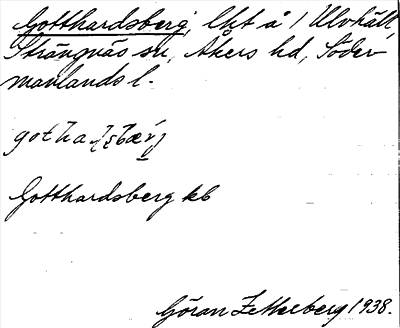 Gotthardsberg, lht å 1 Ulvhäll,
Strängnäs sn, Åkers hd, Söder-
manlands l.
Gotthardsberg kb
Göran Zetterberg 1938.